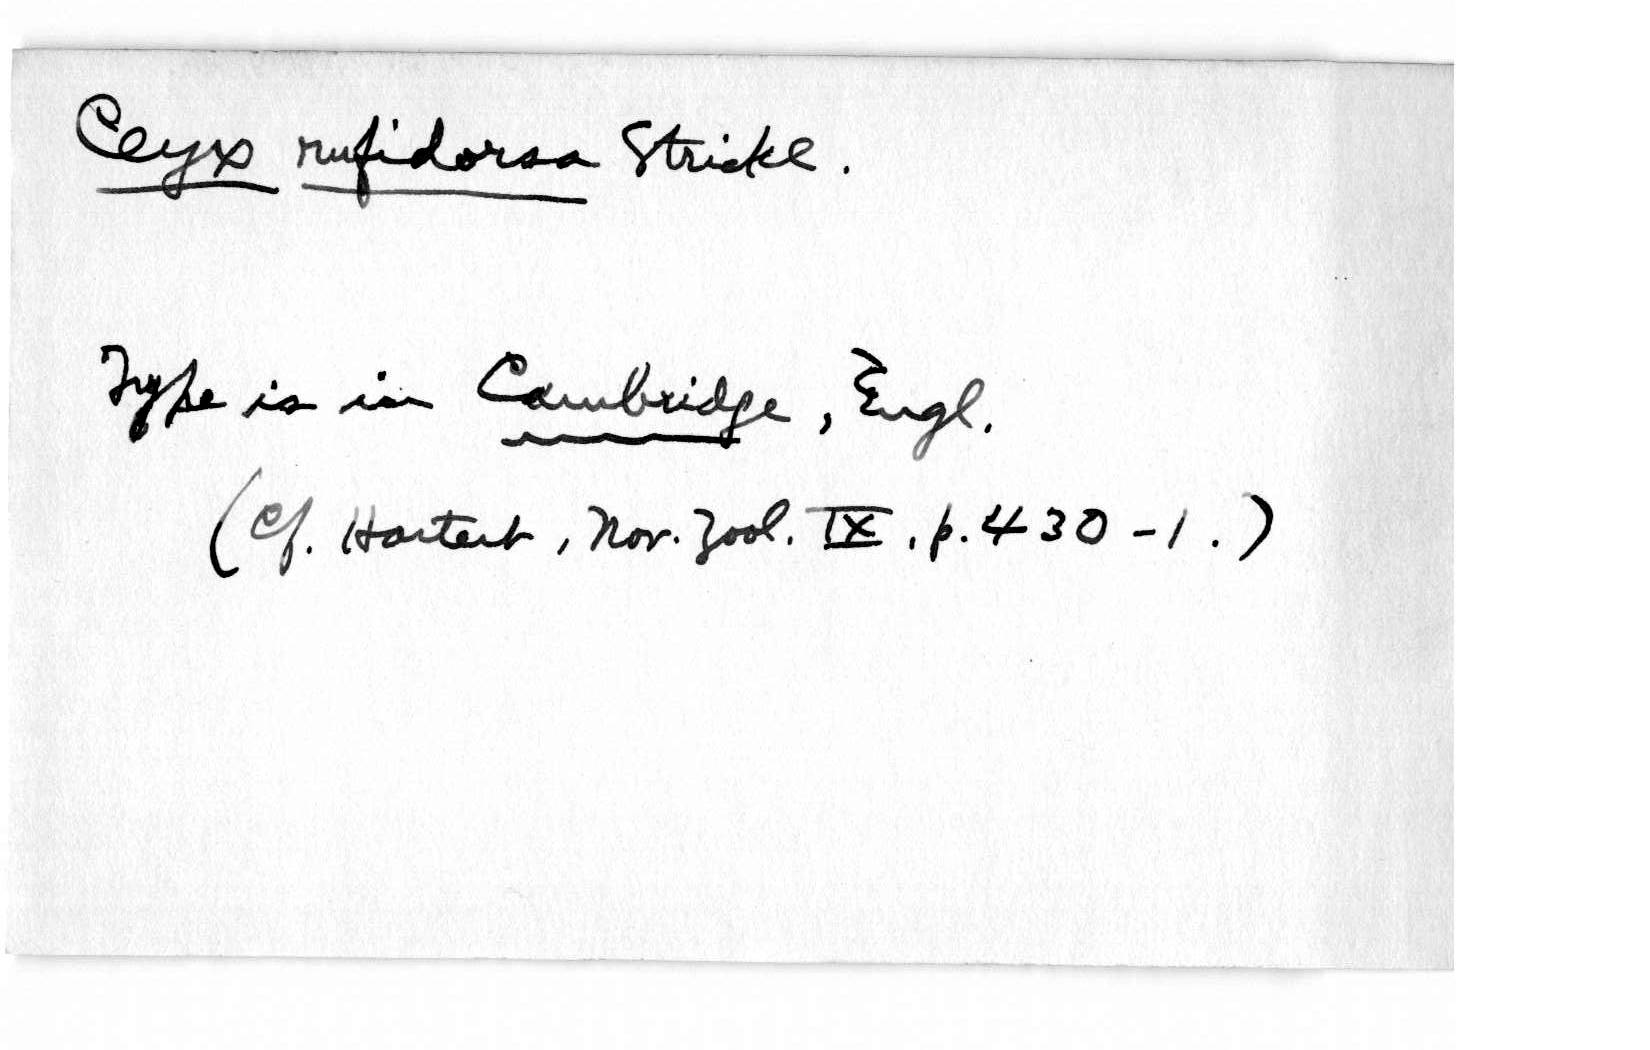 Ceyx rufidorsa Strickl.
Type is in Cambridge, Engl.
(Cf. Hartert, Nov. Zool. IX, p. 430-1.)